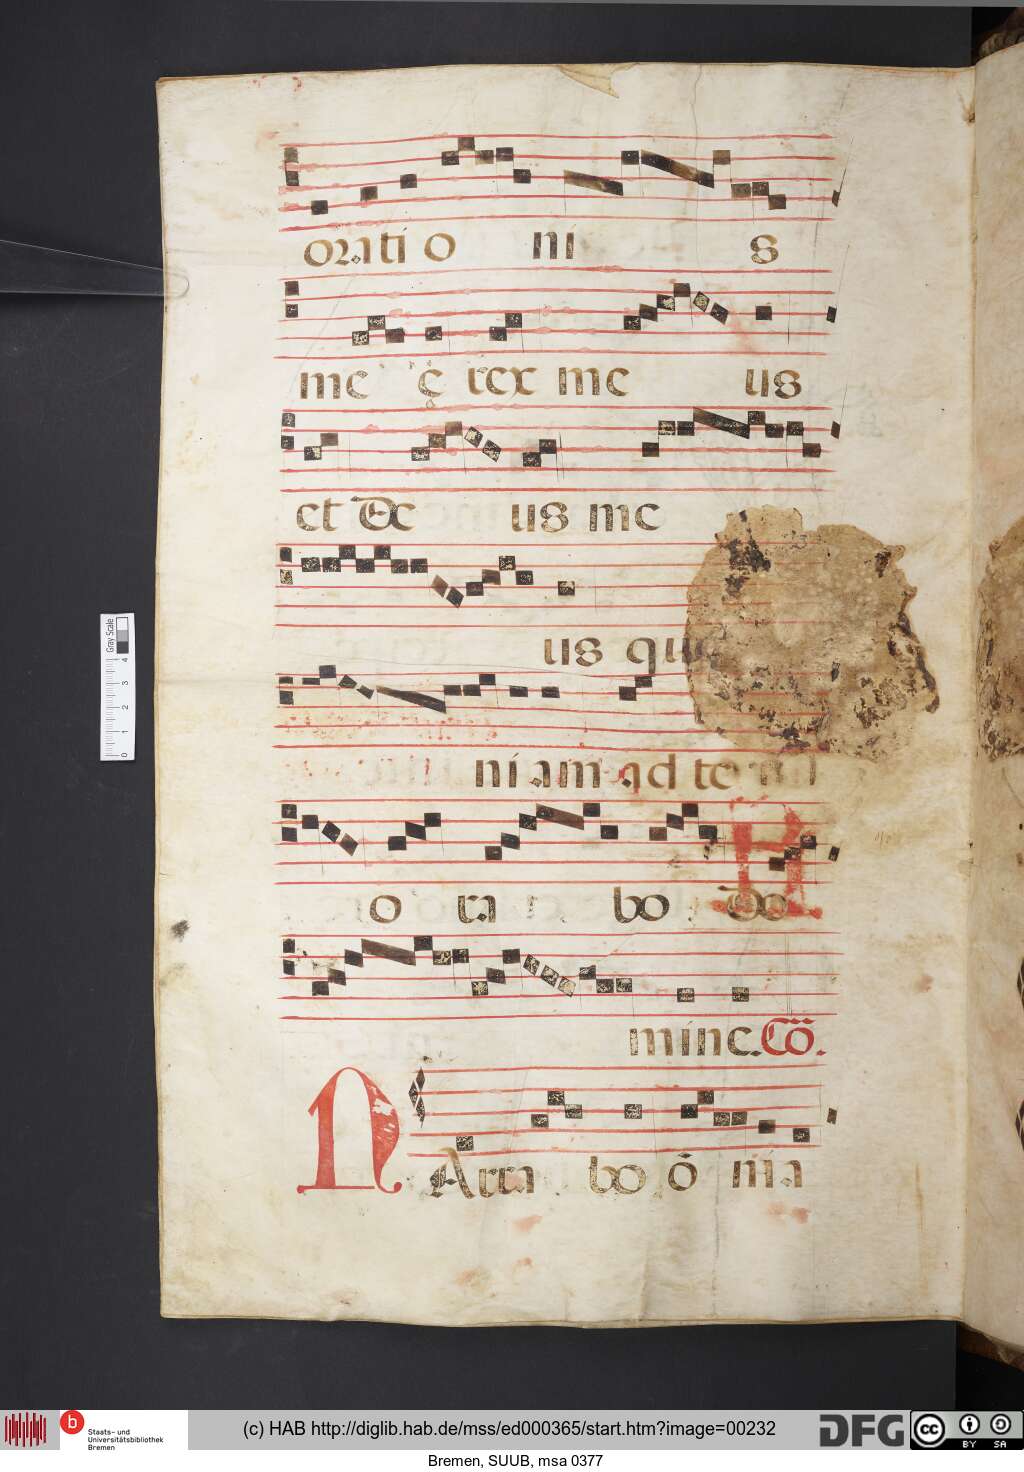 orati o ni s
me ę rex me us
et de us me
us qui
ni am ad te
o ra bo do
mine. Cō.
N Arra bo ō nia
Gray Scale
4
3
2
1
0
b
Staats- und
Universitätsbibliothek
Bremen
(c) HAB http://diglib.hab.de/mss/ed000365/start.htm?image=00232
DFG
cc BY SA
Bremen, SUUB, msa 0377